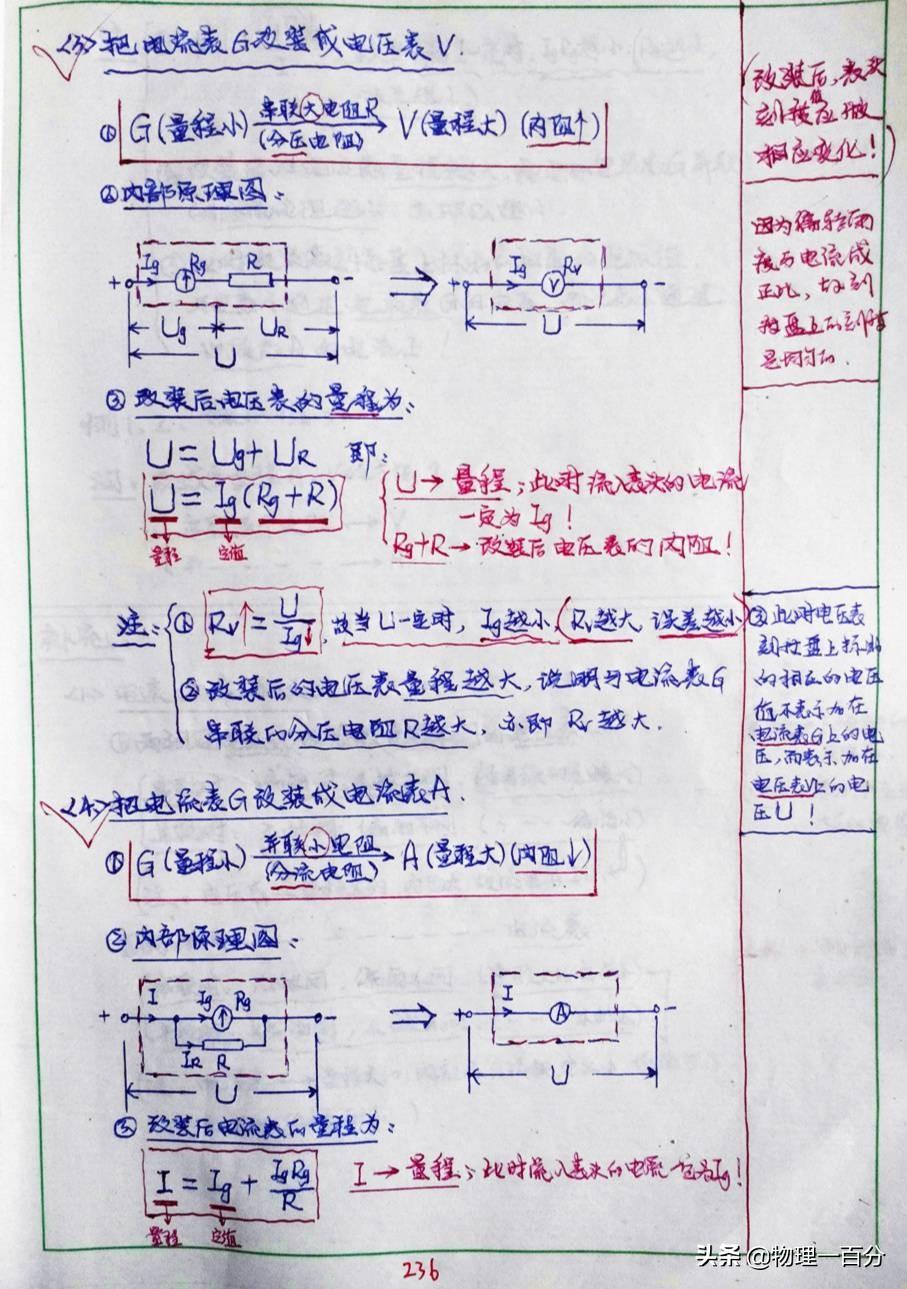 <3>把电流表G改装成电压表V
① G(量程小) 串联大电阻R (分压电阻) V(量程大) (内阻↑)
②内部原理图:
+ Ig Rg R - ⇒ + Ig Rv V -
Ug UR U
U
③ 改装后电压表的量程为:
U=Ug+UR 即:
U=Ig(Rg+R)
量程 定值
U→量程;此时流入表头的电流
一定为Ig!
Rg+R→改装后电压表的内阻!
注: ① Rv↑=U/Ig↓,故当U一定时,Ig越小,Rv越大,误差越小
②改装后的电压表量程越大,说明与电流表G
串联的分压电阻R越大,亦即Rv越大
<4>把电流表G改装成电流表A.
① G(量程小) 并联小电阻 (分流电阻) A(量程大)(内阻↓)
②内部原理图:
+ I Ig Rg - ⇒ + I A -
IR R
U U
③ 改装后电流表的量程为:
I=Ig+IgRg/R
量程 定值
I→量程;此时流入表头的电流一定为Ig!
改装后,表头
刻度值应做
相应变化!
因为偏转角
度与电流成
正比,故刻
度盘上的刻度
是均匀的.
③此时电压表
刻度盘上标出
的相应的电压
值不表示加在
电流表G上的电
压,而表示加在
电压表V上的电
压U!
236
头条@物理一百分